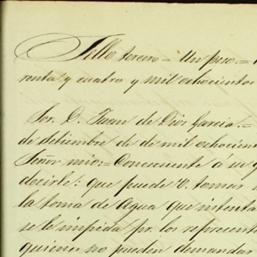 Sello tercero = Un peso. =
renta y cuatro y mil ochocientos
Sor. D. Juan de Dios Garcia. =
de de mil ochocien
Señor mio: = Consecuente á su
decirle: que puede V. tomar
la toma de Agua que intenta
se le impida por los represent
quienes no pueden demandar